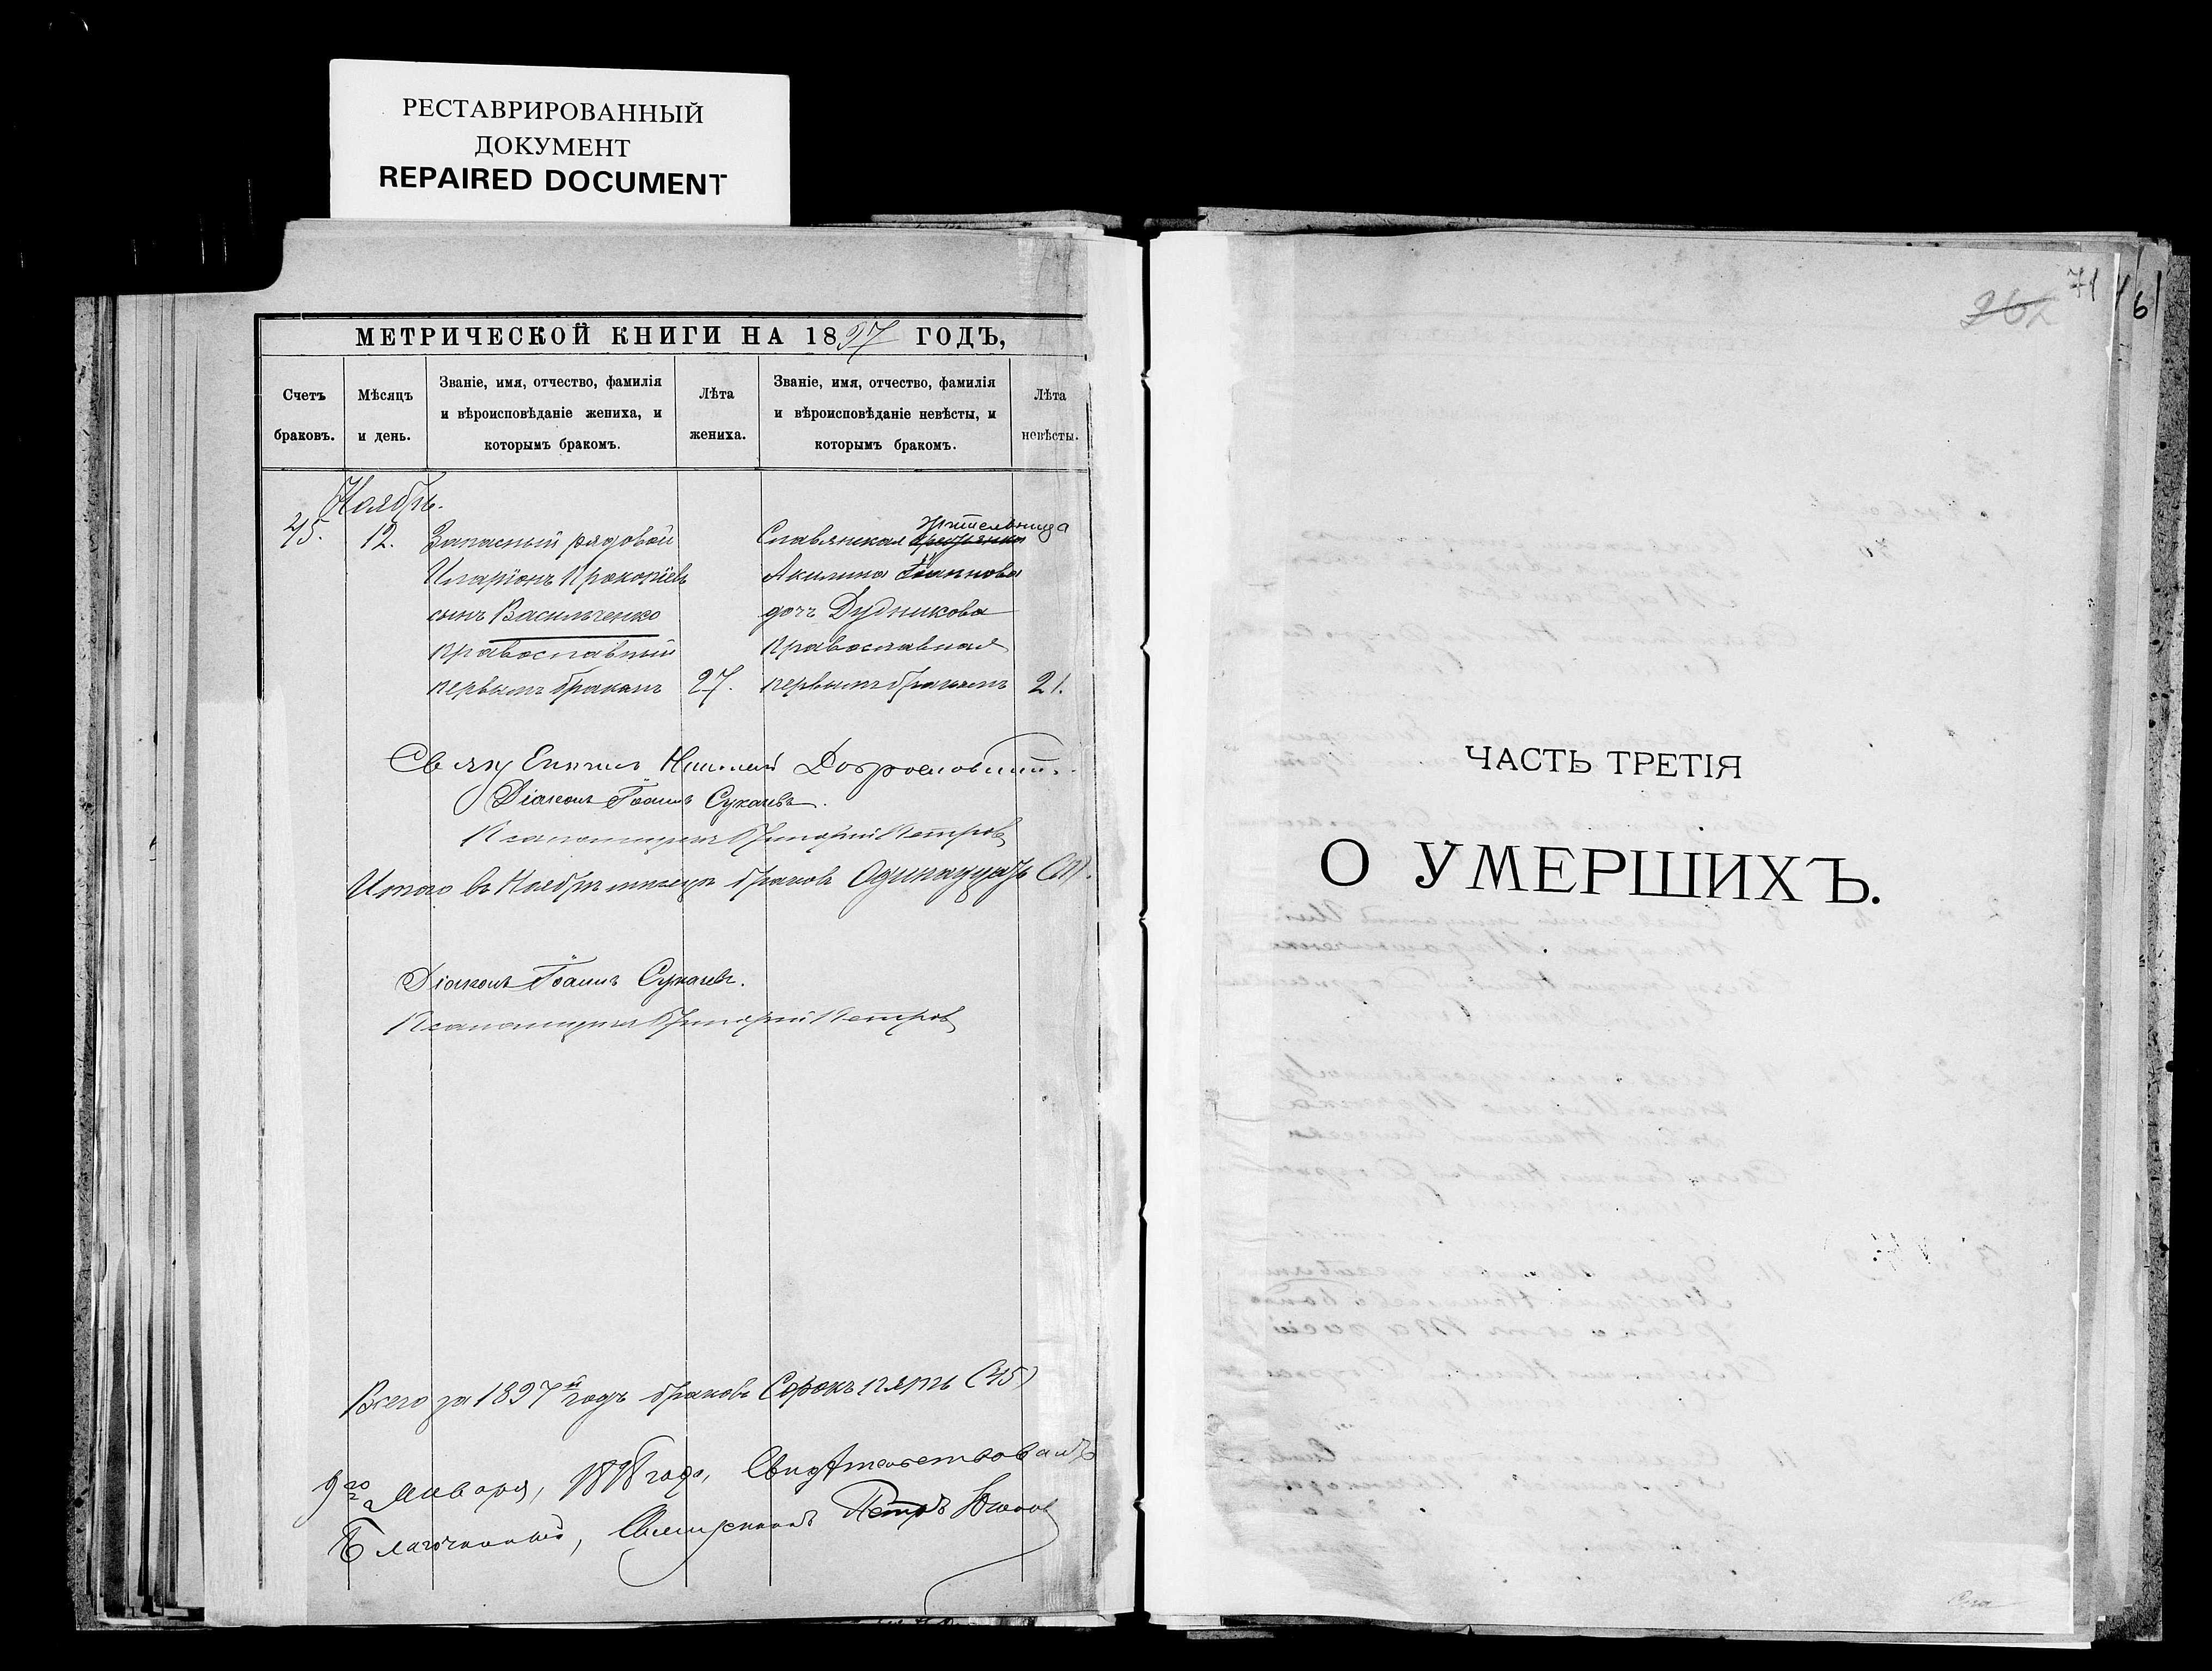 РЕСТАВРИРОВАННЫЙ
ДОКУМЕНТ
REPAIRED DOCUMENT
МЕТРИЧЕСКОЙ КНИГИ НА 1897 ГОДЪ,
Счетъ браковъ.
Мѣсяцъ и день.
Званіе, имя, отчество, фамилія
и вѣроисповѣданіе жениха, и
которымъ бракомъ.
Лѣта жениха.
Званіе, имя, отчество, фамилія
и вѣроисповѣданіе невѣсты, и
которымъ бракомъ.
Лѣта невѣсты.
Ноябрь.
45.
12.
Запасный рядовой
Иларіонъ Прокопіевъ
сынъ Васильченко
православный
первымъ бракомъ
27.
жительница
Славянская
Акилина Іоаннова
дочь Дудникова
православная
первымъ бракомъ
21.
Николай Доброславскій.
Діаконъ Іоаннъ Сукачевъ.
Псаломщикъ Григорій Петровъ
Итого въ Ноябрѣ мѣсяцѣ браковъ Одинадцать (11).
Діаконъ Іоаннъ Сукачевъ.
Псаломщикъ Григорій Петровъ
Всего за 1897й годъ браковъ Сорокъ пять (45)
9го Января, 1898 года, Свидѣтельствовалъ
Благочинный, Священникъ Петръ
262
71
61
ЧАСТЬ ТРЕТІЯ
О УМЕРШИХЪ.